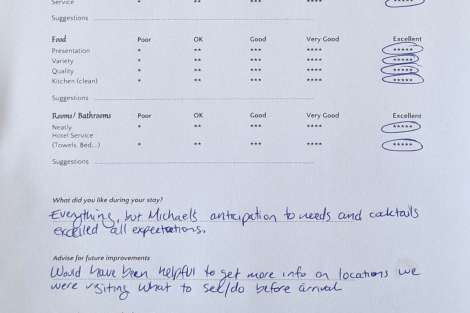 Service * ** *** **** *****
Suggestions
Food Poor OK Good Very Good Excellent
Presentation * ** *** **** *****
Variety * ** *** **** *****
Quality * ** *** **** *****
Kitchen (clean) * ** *** **** *****
Suggestions
Rooms/ Bathrooms Poor OK Good Very Good Excellent
Neatly * ** *** **** *****
Hotel Service
(Towels, Bed...) * ** *** **** *****
Suggestions
What did you like during your stay?
Everything, but Michaels anticipation to needs and cocktails
excelled all expectations.
Advise for future improvements
Would have been helpful to get more info on locations we
were visiting what to see/do before arrival